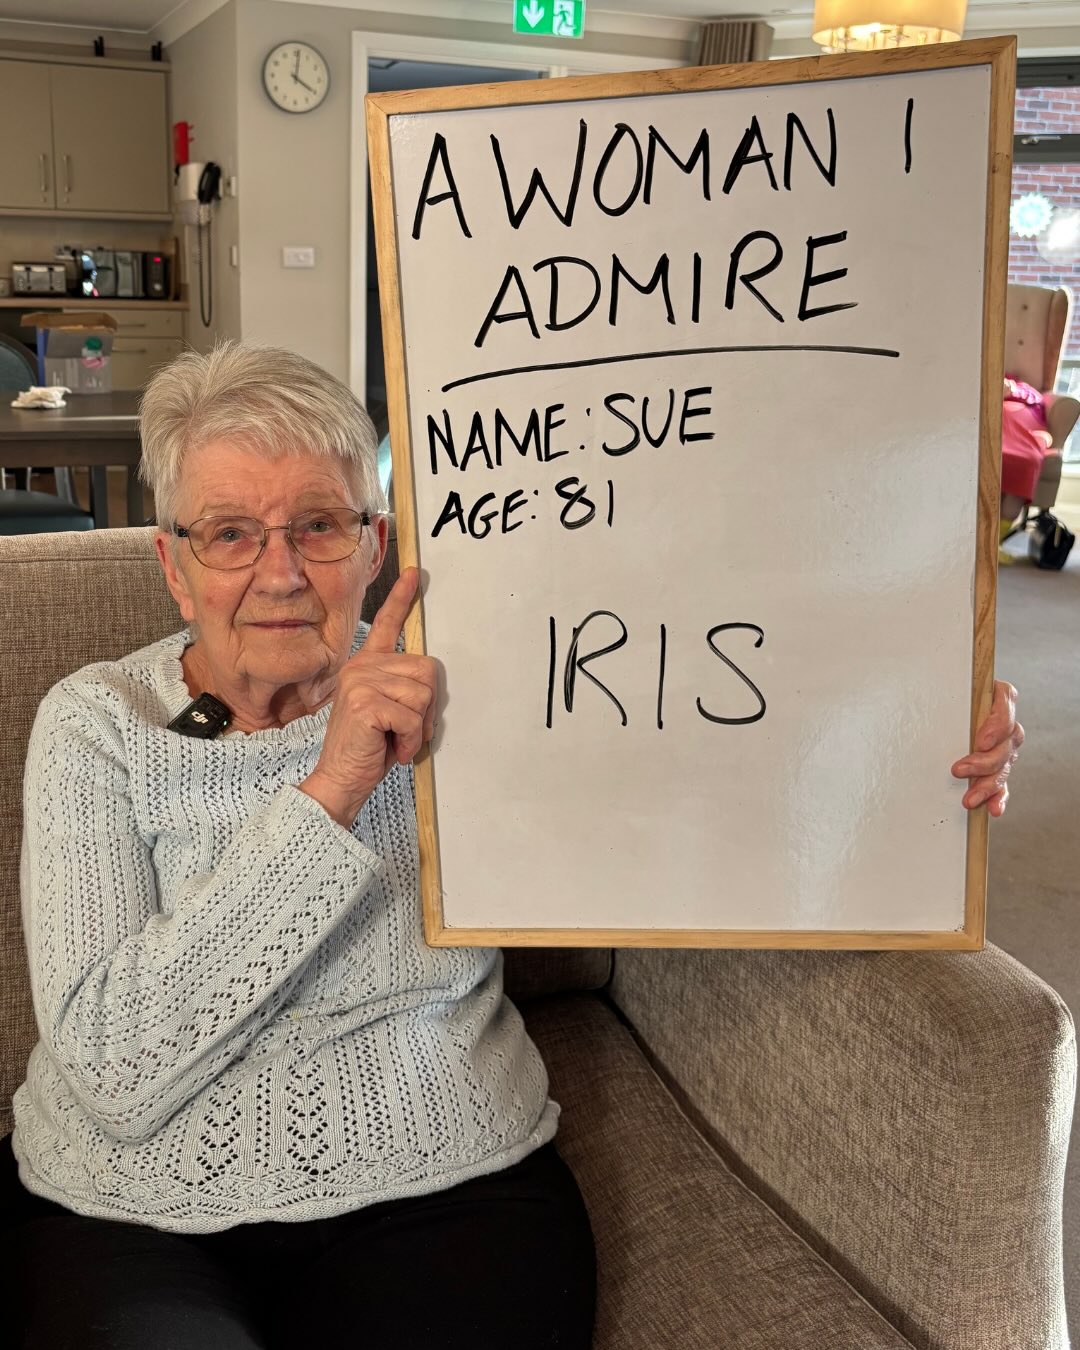 A WOMAN I
ADMIRE
NAME: SUE
AGE: 81
IRIS
dji